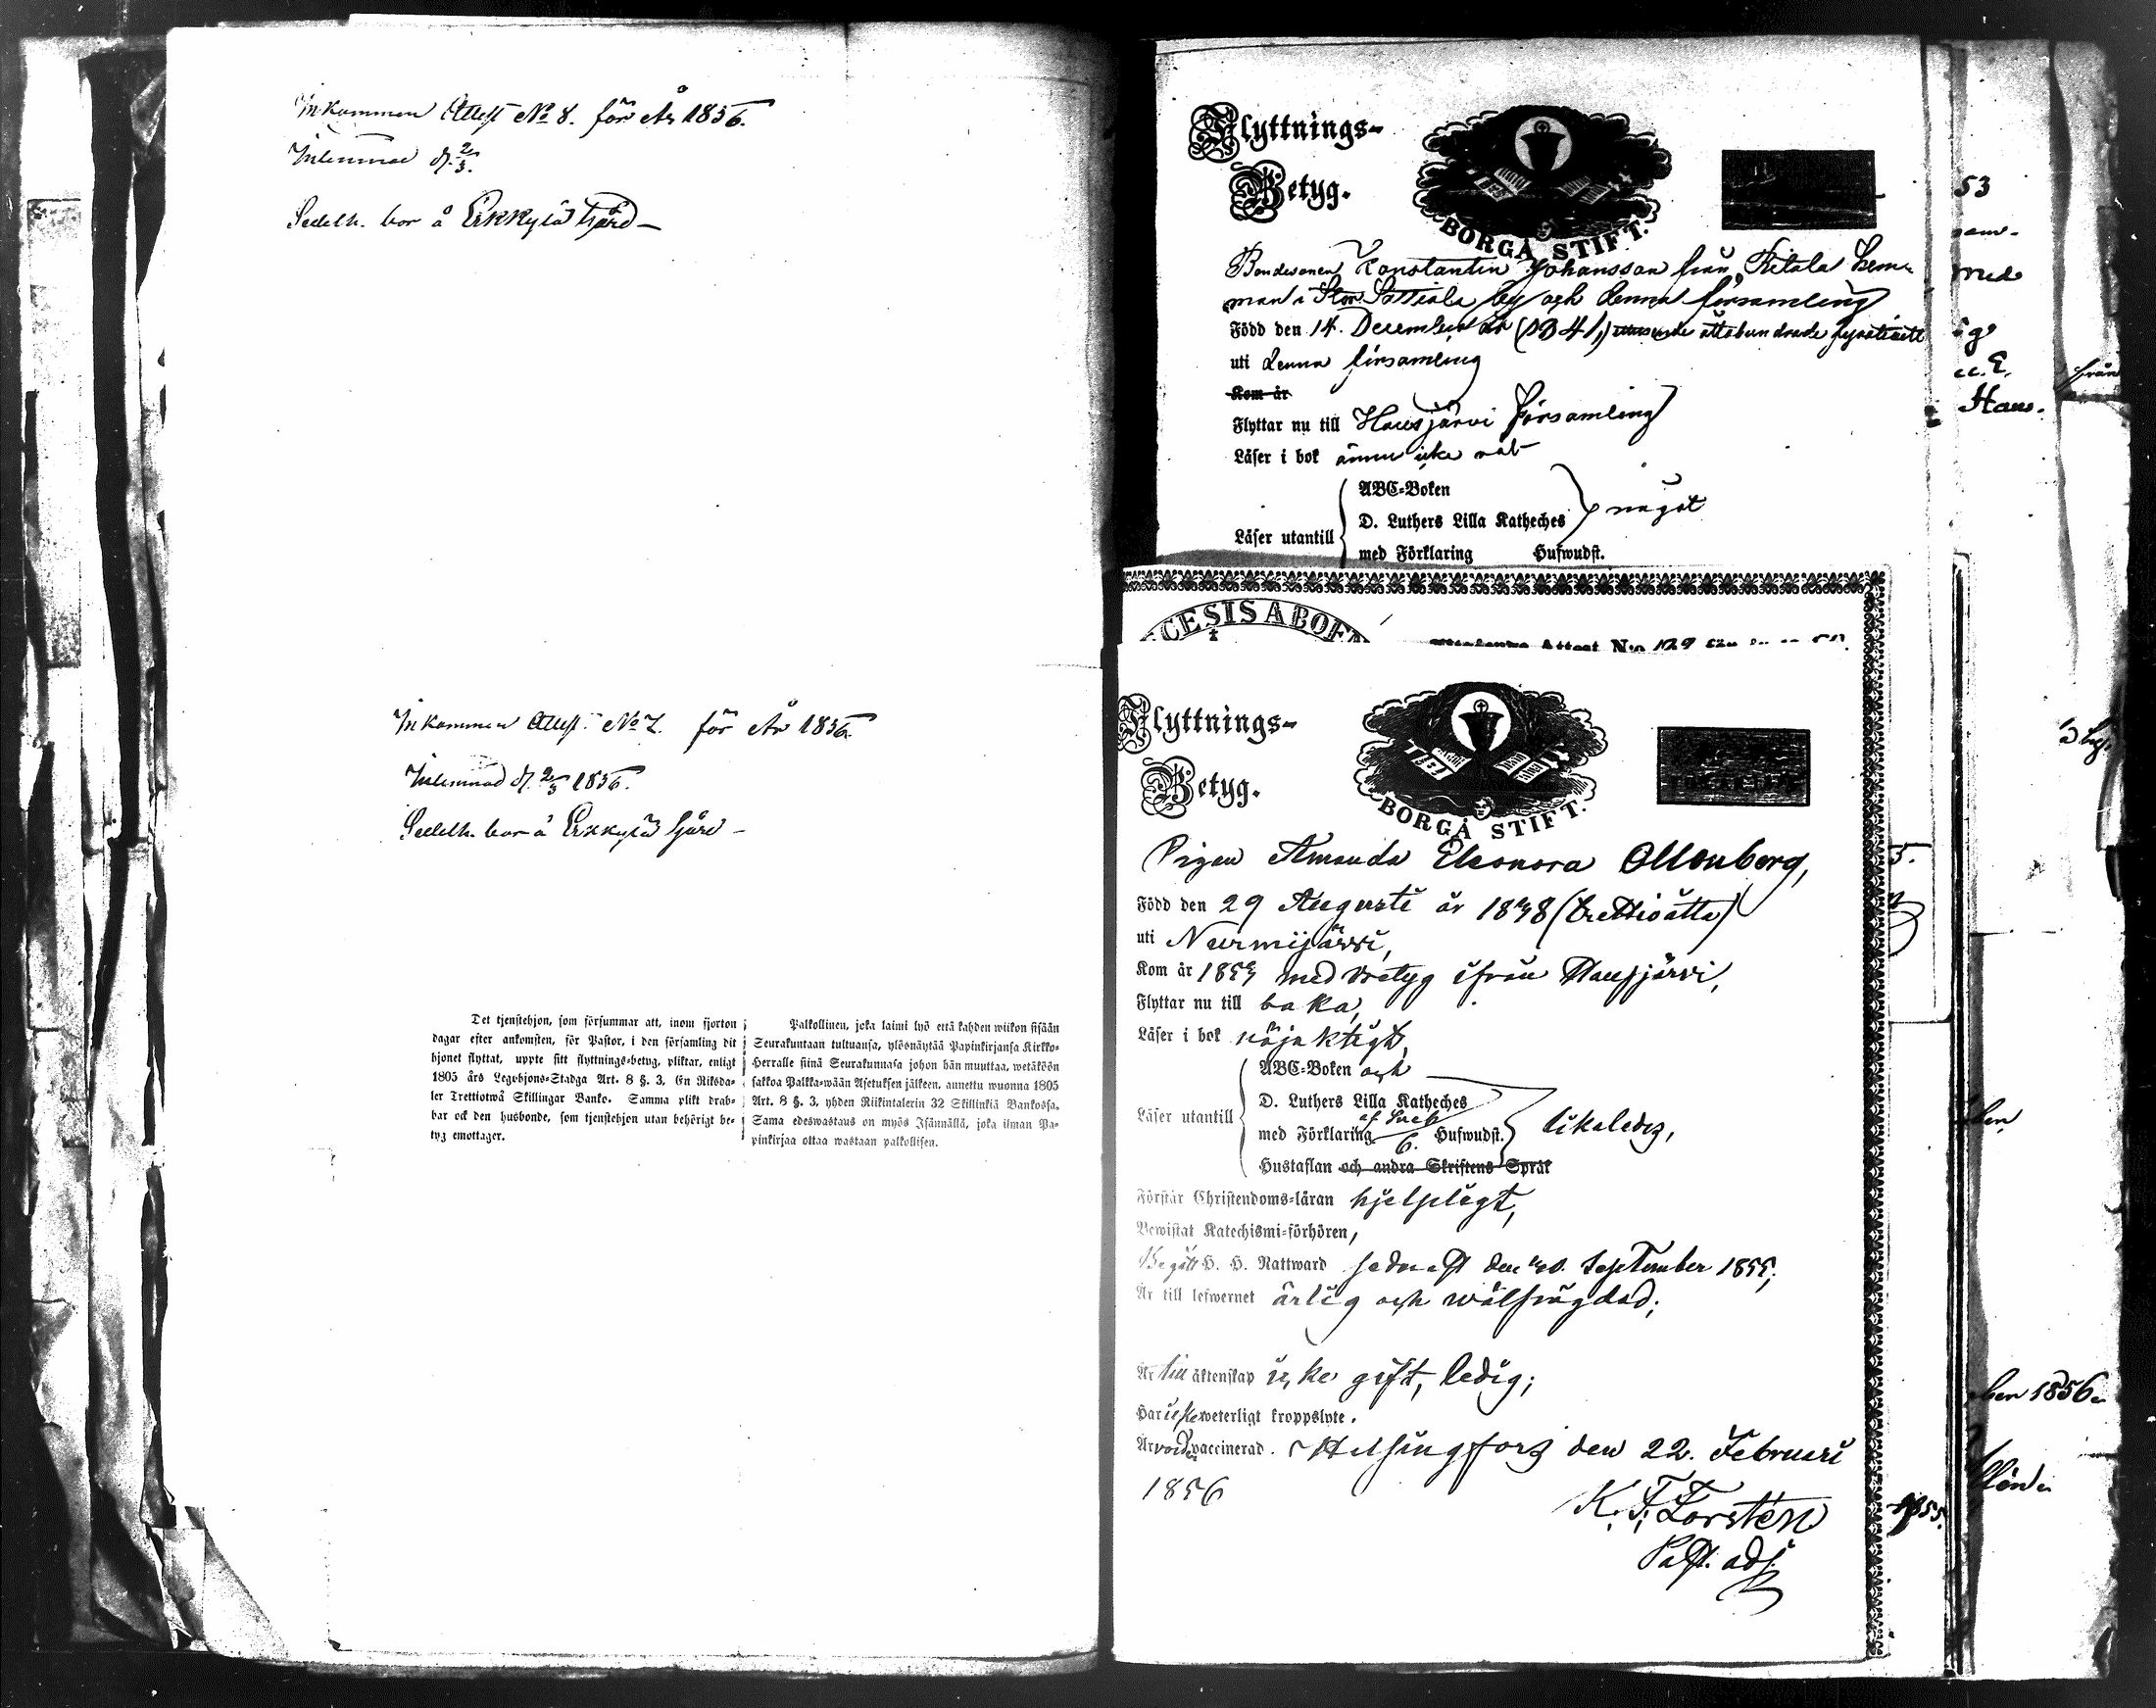 Inkommen Attest No 8. för År 1856.
Inlemnad d. 2/3.
Sedelh. bor å Erkkylä Gård
Inkommen Attest No 7. för År 1856.
Inlemnad d. 2/3 1856.
Sedelh. bor å Erkkylä Gård
Det tjenstehjon, som försummar att, inom fjorton
dagar efter ankomsten, för Pastor, i den församling dit
hjonet flyttat, uppte sitt flyttnings-betyg, pliktar, enligt
1805 års Legohjons-Stadga Art. 8 §. 3, En Riksda-
ler Trettiotwå Skillingar Banko. Samma plikt drab-
bar ock den husbonde, som tjenstehjon utan behörigt be-
tyg emottager.
Palkollinen, joka laimi lyö että kahden wiikon sisään
Seurakuntaan tultuansa, ylösnäytää Papinkirjansa Kirkko-
Herralle siinä Seurakunnasa johon hän muuttaa, wetäköön
sakkoa Palkka-wään Asetuksen jälkeen, annettu wuonna 1805
Art. 8 §. 3, yhden Riikintalerin 32 Skillinkiä Bankossa.
Sama edeswastaus on myös Isännällä, joka ilman Pa-
pinkirjaa ottaa wastaan palkollisen.
Flyttnings-
Betyg.
BORGÅ STIFT.
Bondesonen Konstantin Johansson från Kitala hem-
man i Stor Sattiala by och denna församling
Född den 14. December år (1841,) adertonde åttahundrade fyratioett
uti denna församling
Kom år
Flyttar nu till Hausjärvi församling
Läser i bok ännu icke väl
ABC-Boken
D. Luthers Lilla Katheches
något
Läser utantill
med Förklaring Hufwudst.
CESIS ABOE
Attest N:o 129
Flyttnings-
Betyg.
BORGÅ STIFT.
Pigan Amanda Eleonora Ollonberg,
Född den 29 Augusti år 1838 (trettioåtta)
uti Nurmijärvi,
Kom år 1855 med betyg ifrån Hausjärvi,
Flyttar nu till baka,
Läser i bok nöjaktigt,
ABC-Boken och
D. Luthers Lilla Katheches
Läser utantill
med Förklaring af Sueb. 6. Hufwudst.
likaledes,
Hustaflan och andra Skriftens Språk
Förstår Christendoms-läran hjelpligt,
Bewistat Katechismi-förhören,
Begått H. H. Nattward sednast den 30. September 1855;
Är till lefwernet ärlig och wälfrägdad;
Är till äktenskap icke gift, ledig;
Har icke weterligt kroppslyte.
Är vorden vaccinerad. Helsingfors den 22. Februari
1856
K. F. Forstén
Past. adj.
53
med
Haus.
från
1856
1855.